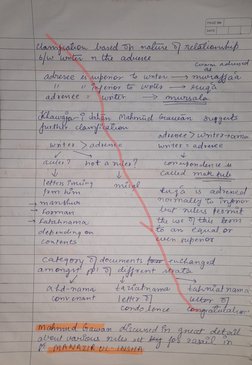 Classification based on nature of relationship
b/w writer n the adresee
adresee is superior to writer → muraffaja
" " inferior to writer → ruqa
adresee = writer → mursala
Mahmud Gawan suggests
further classification
adresee > writer
writer > adresee
writer = adresee
ruler?
not a ruler?
correspondence is
called maktub
letters issuing
from him
misal
→ manshur
→ Farman
→ Fatehnama
depending on
contents
ruqa is adresed
normally to inferior
but rules permit
the use of this term
to an equal or
even superior
category of documents four exchanged
amongst ppl of different strata
ahd-nama
covenant
taziatnama
letter of
condolence
tahniatnama
letter of
congratulation
Mahmud Gawan discussed in great detail
about various rules
MANAZIR UL-INSHA